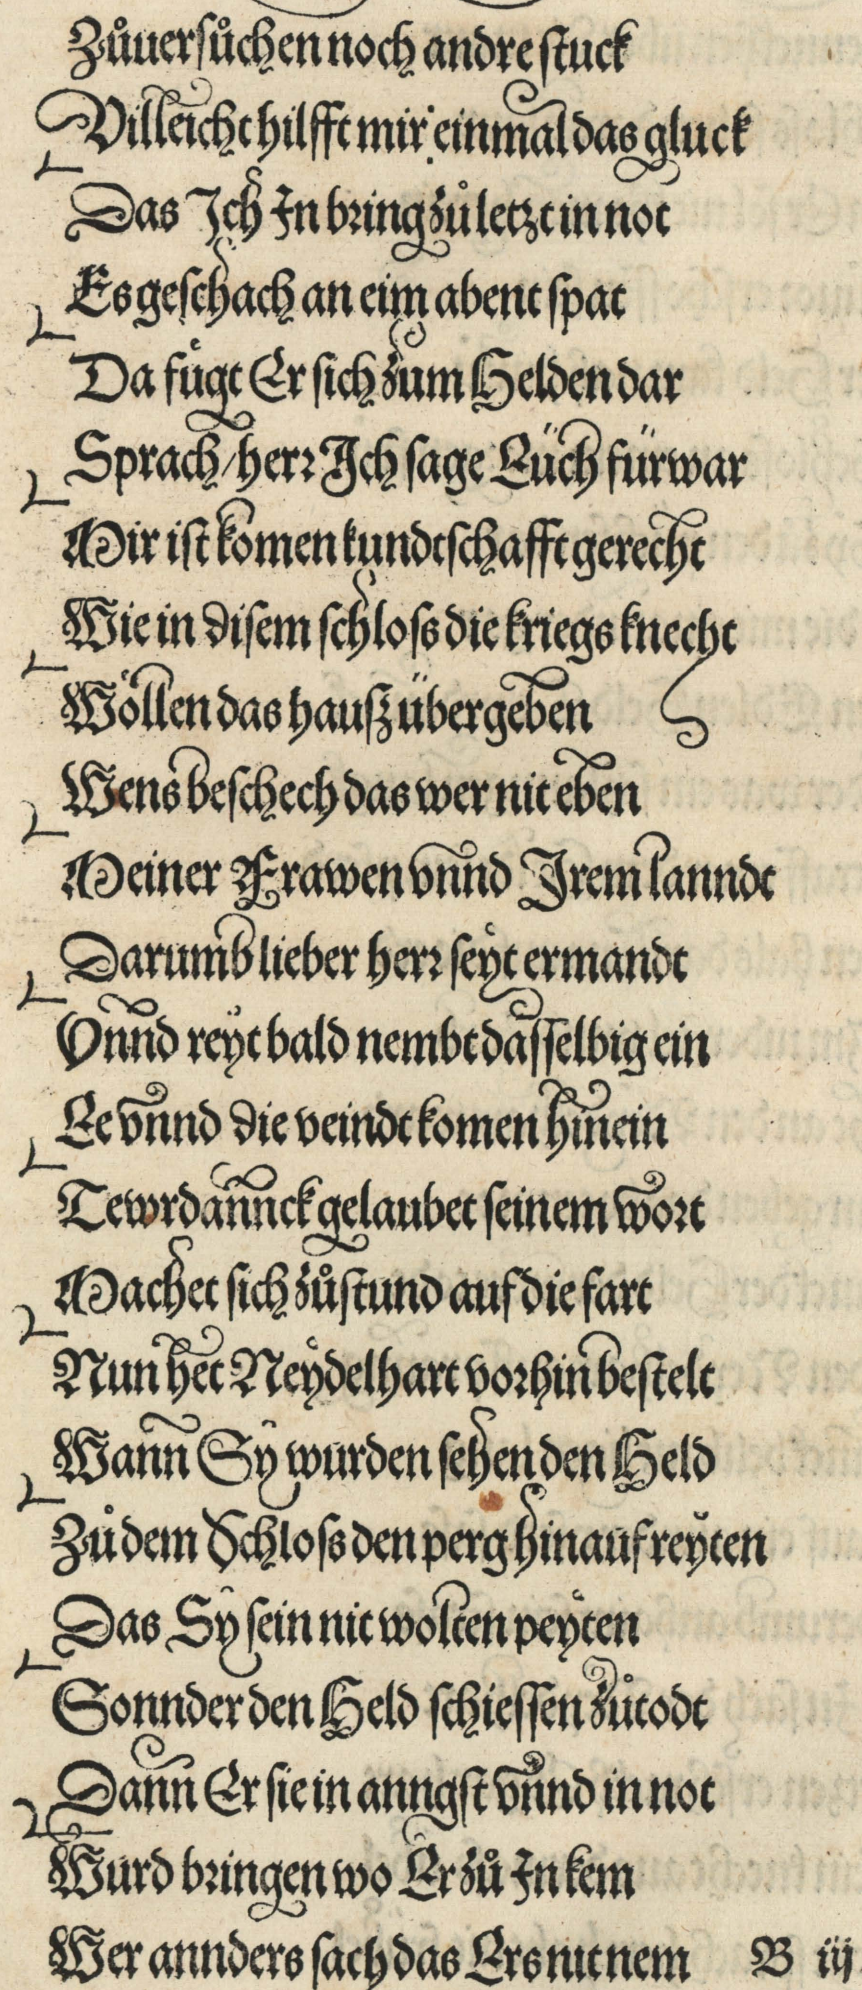 Zůuersůchen noch andre stuck
Villeicht hilfft mir einmal das gluck
Das Ich In bring zů letzt in not
Es geschach an eim abent spat
Da fůgt Er sich zum Helden dar
Sprach / herr Ich sage Eüch fürwar
Mir ist komen kundtschafft gerecht
Wie in disem schloss die kriegs knecht
Wöllen das hausz übergeben
Wens beschech das wer nit eben
Meiner Frawen vnnd Irem lanndt
Darumb lieber herr seyt ermandt
Vnnd reyt bald nembt dasselbig ein
Ee vnnd die veindt komen hinein
Tewrdannck gelaubet seinem wort
Machet sich zůstund auf die fart
Nun het Neydelhart vorhin bestelt
Wann Sy wurden sehen den Held
Zů dem Schloss den perg hinauf reyten
Das Sy sein nit wolten peyten
Sonnder den Held schiessen zůtodt
Dann Er sie in anngst vnnd in not
Wurd bringen wo Er zů In kem
Wer annders sach das Ers nit nem B iij